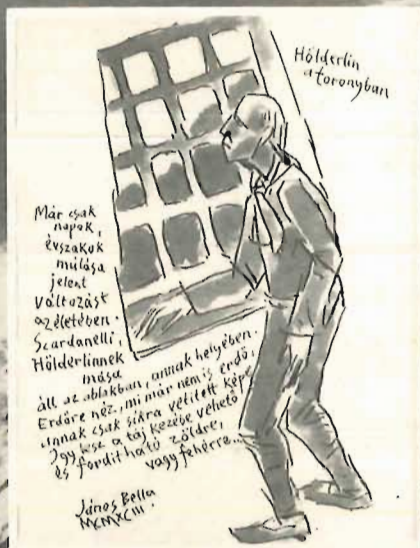 Hölderlin
a toronyban
Már csak
napok,
évszakok
múlása
jelent
változást
az életében.
Scardanelli,
Hölderlinnek
mása
áll az ablakban, annak helyében.
Erdőre néz, mi már nem is erdő,
annak csak síkra vetített képe
Így lesz a táj kezébe vehető
és fordítható zöldre,
vagy fehérre...
János Bella
MCMXCIII.